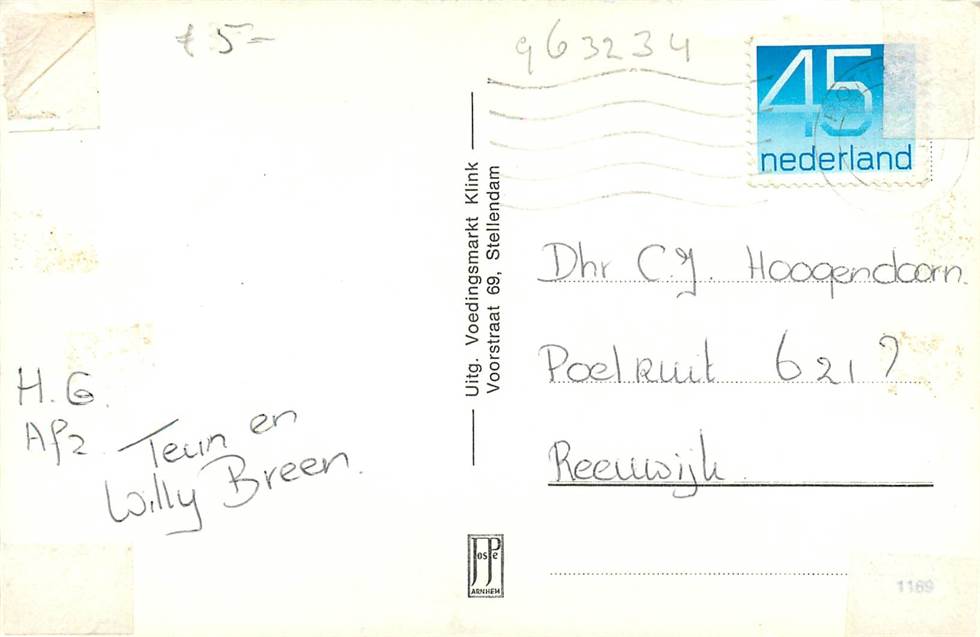 € 5-
963234
45
nederland
Uitg. Voedingsmarkt Klink
Voorstraat 69, Stellendam
Dhr C.J. Hoogendoorn.
Poelruit 621 ?
Reeuwijk
H.G.
Afz. Teun en
Willy Breen.
JosPe
ARNHEM
1169